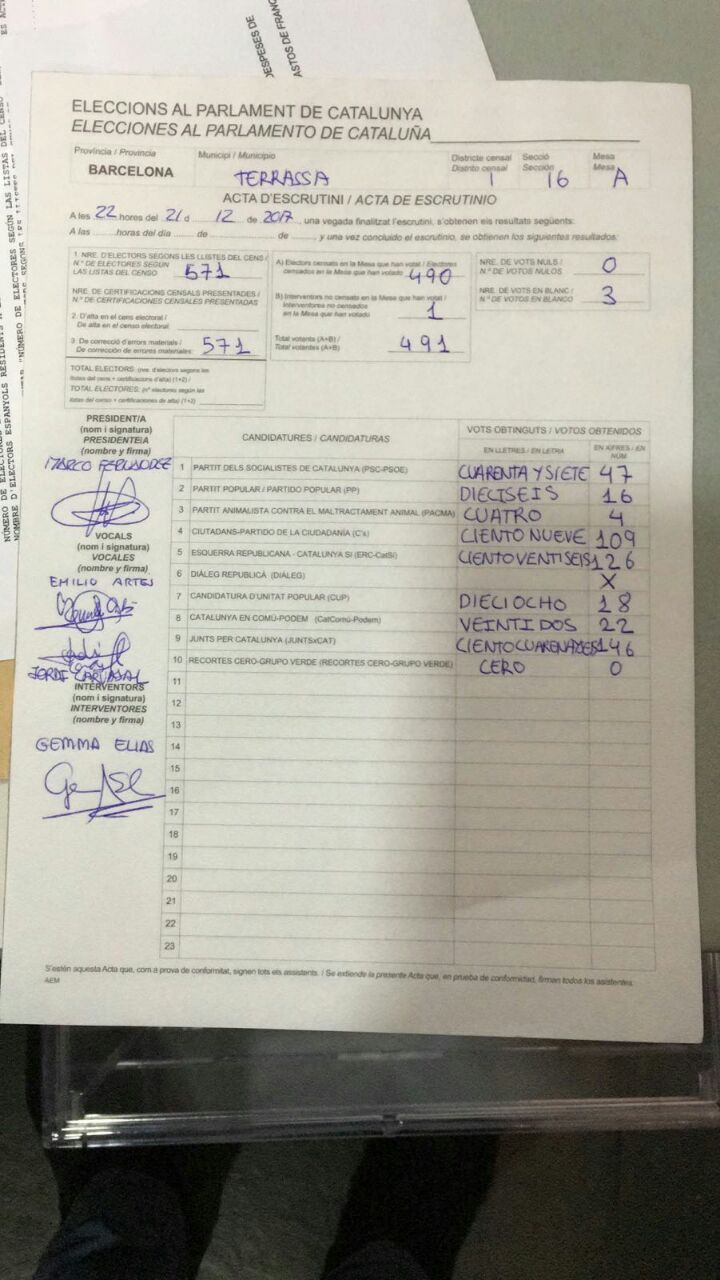 DESPESES DE
ASTOS DE FRANQ
ELECCIONS AL PARLAMENT DE CATALUNYA
ELECCIONES AL PARLAMENTO DE CATALUÑA
Província / Provincia Municipi / Municipio Districte censal Secció Mesa
Distrito censal Sección Mesa
BARCELONA TERRASSA 1 16 A
ACTA D'ESCRUTINI / ACTA DE ESCRUTINIO
A les 22 hores del 21 d 12 de 2017, una vegada finalitzat l'escrutini, s'obtenen els resultats següents:
A las ......horas del día ...... de ............ de ......, y una vez concluido el escrutinio, se obtienen los siguientes resultados:
1. NRE. D'ELECTORS SEGONS LES LLISTES DEL CENS /
N.º DE ELECTORES SEGÚN
LAS LISTAS DEL CENSO 571
NRE. DE CERTIFICACIONS CENSALS PRESENTADES /
N.º DE CERTIFICACIONES CENSALES PRESENTADAS
2. D'alta en el cens electoral /
De alta en el censo electoral
3. De correcció d'errors materials /
De corrección de errores materiales 571
TOTAL ELECTORS: (nre. d'electors segons les
llistes del cens + certificacions d'alta) (1+2) /
TOTAL ELECTORES: (nº electores según las
listas del censo + certificaciones de alta) (1+2)
A) Electors censats en la Mesa que han votat / Electores
censados en la Mesa que han votado 490
B) Interventors no censats en la Mesa que han votat /
Interventores no censados
en la Mesa que han votado 1
Total votants (A+B) /
Total votantes (A+B) 491
NRE. DE VOTS NULS /
N.º DE VOTOS NULOS 0
NRE. DE VOTS EN BLANC /
N.º DE VOTOS EN BLANCO 3
PRESIDENT/A
(nom i signatura)
PRESIDENTE/A
(nombre y firma)
MARCO FERNANDEZ
VOCALS
(nom i signatura)
VOCALES
(nombre y firma)
EMILIO ARTES
JORDI CARVAJAL
INTERVENTORS
(nom i signatura)
INTERVENTORES
(nombre y firma)
GEMMA ELIAS
CANDIDATURES / CANDIDATURAS VOTS OBTINGUTS / VOTOS OBTENIDOS
EN LLETRES / EN LETRA EN XIFRES / EN NÚM
1 PARTIT DELS SOCIALISTES DE CATALUNYA (PSC-PSOE) CUARENTA Y SIETE 47
2 PARTIT POPULAR / PARTIDO POPULAR (PP) DIECISEIS 16
3 PARTIT ANIMALISTA CONTRA EL MALTRACTAMENT ANIMAL (PACMA) CUATRO 4
4 CIUTADANS-PARTIDO DE LA CIUDADANÍA (C's) CIENTO NUEVE 109
5 ESQUERRA REPUBLICANA - CATALUNYA SÍ (ERC-CatSí) CIENTO VENTISEIS 126
6 DIÀLEG REPUBLICÀ (DIÀLEG) X
7 CANDIDATURA D'UNITAT POPULAR (CUP) DIECIOCHO 18
8 CATALUNYA EN COMÚ-PODEM (CatComú-Podem) VEINTIDOS 22
9 JUNTS PER CATALUNYA (JUNTSxCAT) 146
10 RECORTES CERO-GRUPO VERDE (RECORTES CERO-GRUPO VERDE) CERO 0
11
12
13
14
15
16
17
18
19
20
21
22
23
S'estén aquesta Acta que, com a prova de conformitat, signen tots els assistents. / Se extiende la presente Acta que, en prueba de conformidad, firman todos los asistentes.
AEM